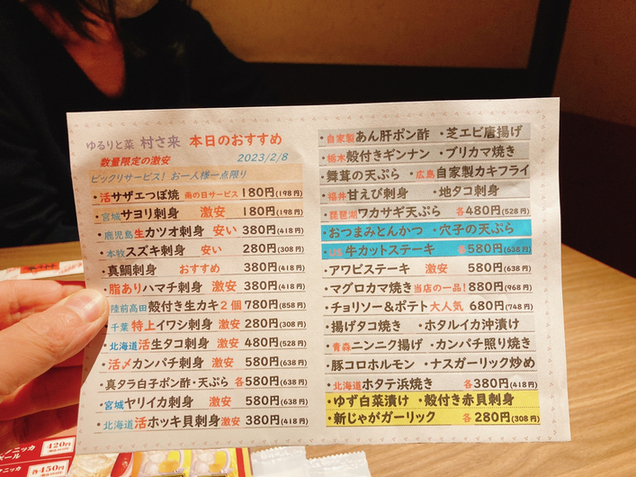 ゆるりと菜 村さ来 本日のおすすめ
数量限定の激安 2023/2/8
ビックリサービス! お一人様一点限り
・活サザエつぼ焼 雨の日サービス 180円(198円)
・宮城サヨリ刺身 激安 180円(198円)
・鹿児島生カツオ刺身 安い 380円(418円)
・本牧スズキ刺身 安い 280円(308円)
・真鯛刺身 おすすめ 380円(418円)
・脂ありハマチ刺身 激安 380円(418円)
・陸前高田殻付き生カキ2個 780円(858円)
・千葉特上イワシ刺身 激安 280円(308円)
・北海道活生タコ刺身 激安 480円(528円)
・活〆カンパチ刺身 激安 580円(638円)
・真タラ白子ポン酢・天ぷら 各580円(638円)
・宮城ヤリイカ刺身 激安 580円(638円)
・北海道活ホッキ貝刺身 激安 380円(418円)
・自家製あん肝ポン酢 ・芝エビ唐揚げ
・栃木殻付きギンナン ・ブリカマ焼き
・舞茸の天ぷら ・広島自家製カキフライ
・福井甘えび刺身 ・地タコ刺身
・琵琶湖ワカサギ天ぷら 各480円(528円)
・おつまみとんかつ ・穴子の天ぷら
牛カットステーキ 各580円(638円)
・アワビステーキ 激安 580円(638円)
・マグロカマ焼き 当店の一品! 880円(968円)
・チョリソー&ポテト 大人気 680円(748円)
・揚げタコ焼き ・ホタルイカ沖漬け
・青森ニンニク揚げ ・カンパチ照り焼き
・豚コロホルモン ・ナスガーリック炒め
・北海道ホタテ浜焼き 各380円(418円)
・ゆず白菜漬け ・殻付き赤貝刺身
・新じゃがガーリック 各280円(308円)
420円
各450円